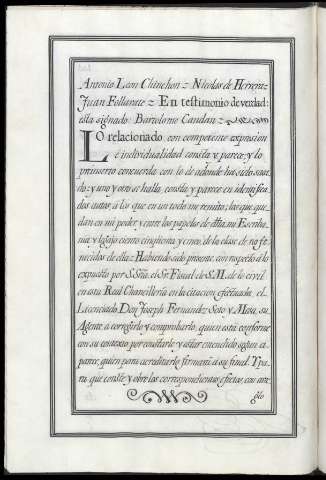 Antonio Leon Chinchon = Nicolas de Herrera =
Juan Follarate = En testimonio de verdad:
esta signado: Bartolome Candau =
LO relacionado, con competente expresion
è individualidad consta y parece; y lo
primero concuerda con lo de adonde ha sido saca
do: y uno y otro se halla, consta y parece en identifica
dos autos, á los que en un todo me remito; los que que
dan en mi poder y entre los papeles de dha mi Escriba
nia y legajo ciento cinquenta y cinco, de la clase de no fe
necidos de ella: Habiendo sido presente, con respecto á lo
expuesto por S. Sria. el Sr. Fiscal de S. M. de lo civil
en esta Real Chancilleria en la citacion efectuada, el
Licenciado Don Joseph Fernandez Soto y Mesa, su
Agente, a corregirlo y comprobarlo, quien está conforme
con su contexto por constarle y estar entendido segun a
parece, quien para acreditarlo firmará a su final. Y pa
ra que conste y obre los correspondientes efectos, con arre
glo